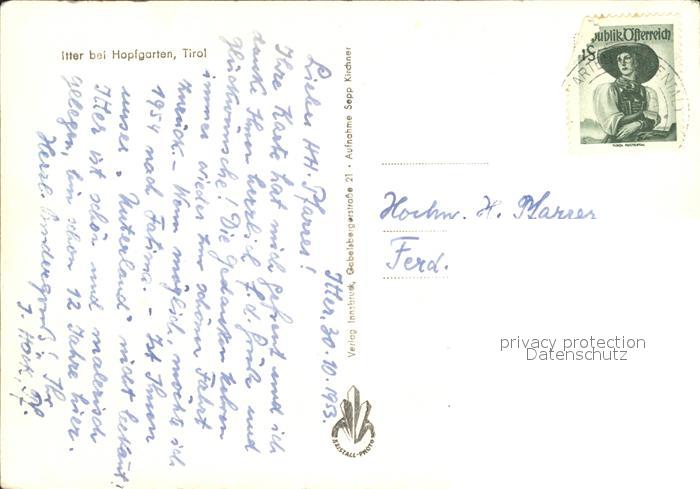 Itter bei Hopfgarten, Tirol
Itter, 30.10.1953.
Lieber HH. Pfarrer!
Ihre Karte hat mich gefreut und ich
danke Ihnen herzlich f. d. Grüße und
Glückwünsche! Die Gedanken kehren
immer wieder zur schönen Fahrt
zurück. – Wenn möglich, möchte ich
1954 nach Fatima. – Ist Ihnen
unser "Unterland" nicht bekannt?
Itter ist schön und malerisch
gelegen, bin schon 12 Jahre hier.
Herzl. Ihr
J.
Verlag Innsbruck, Gabelsbergerstraße 21 · Aufnahme Sepp Kirchner
KRISTALL-PHOTO
publik Österreich
Hochw. H. Pfarrer
Ferd.
privacy protection
Datenschutz